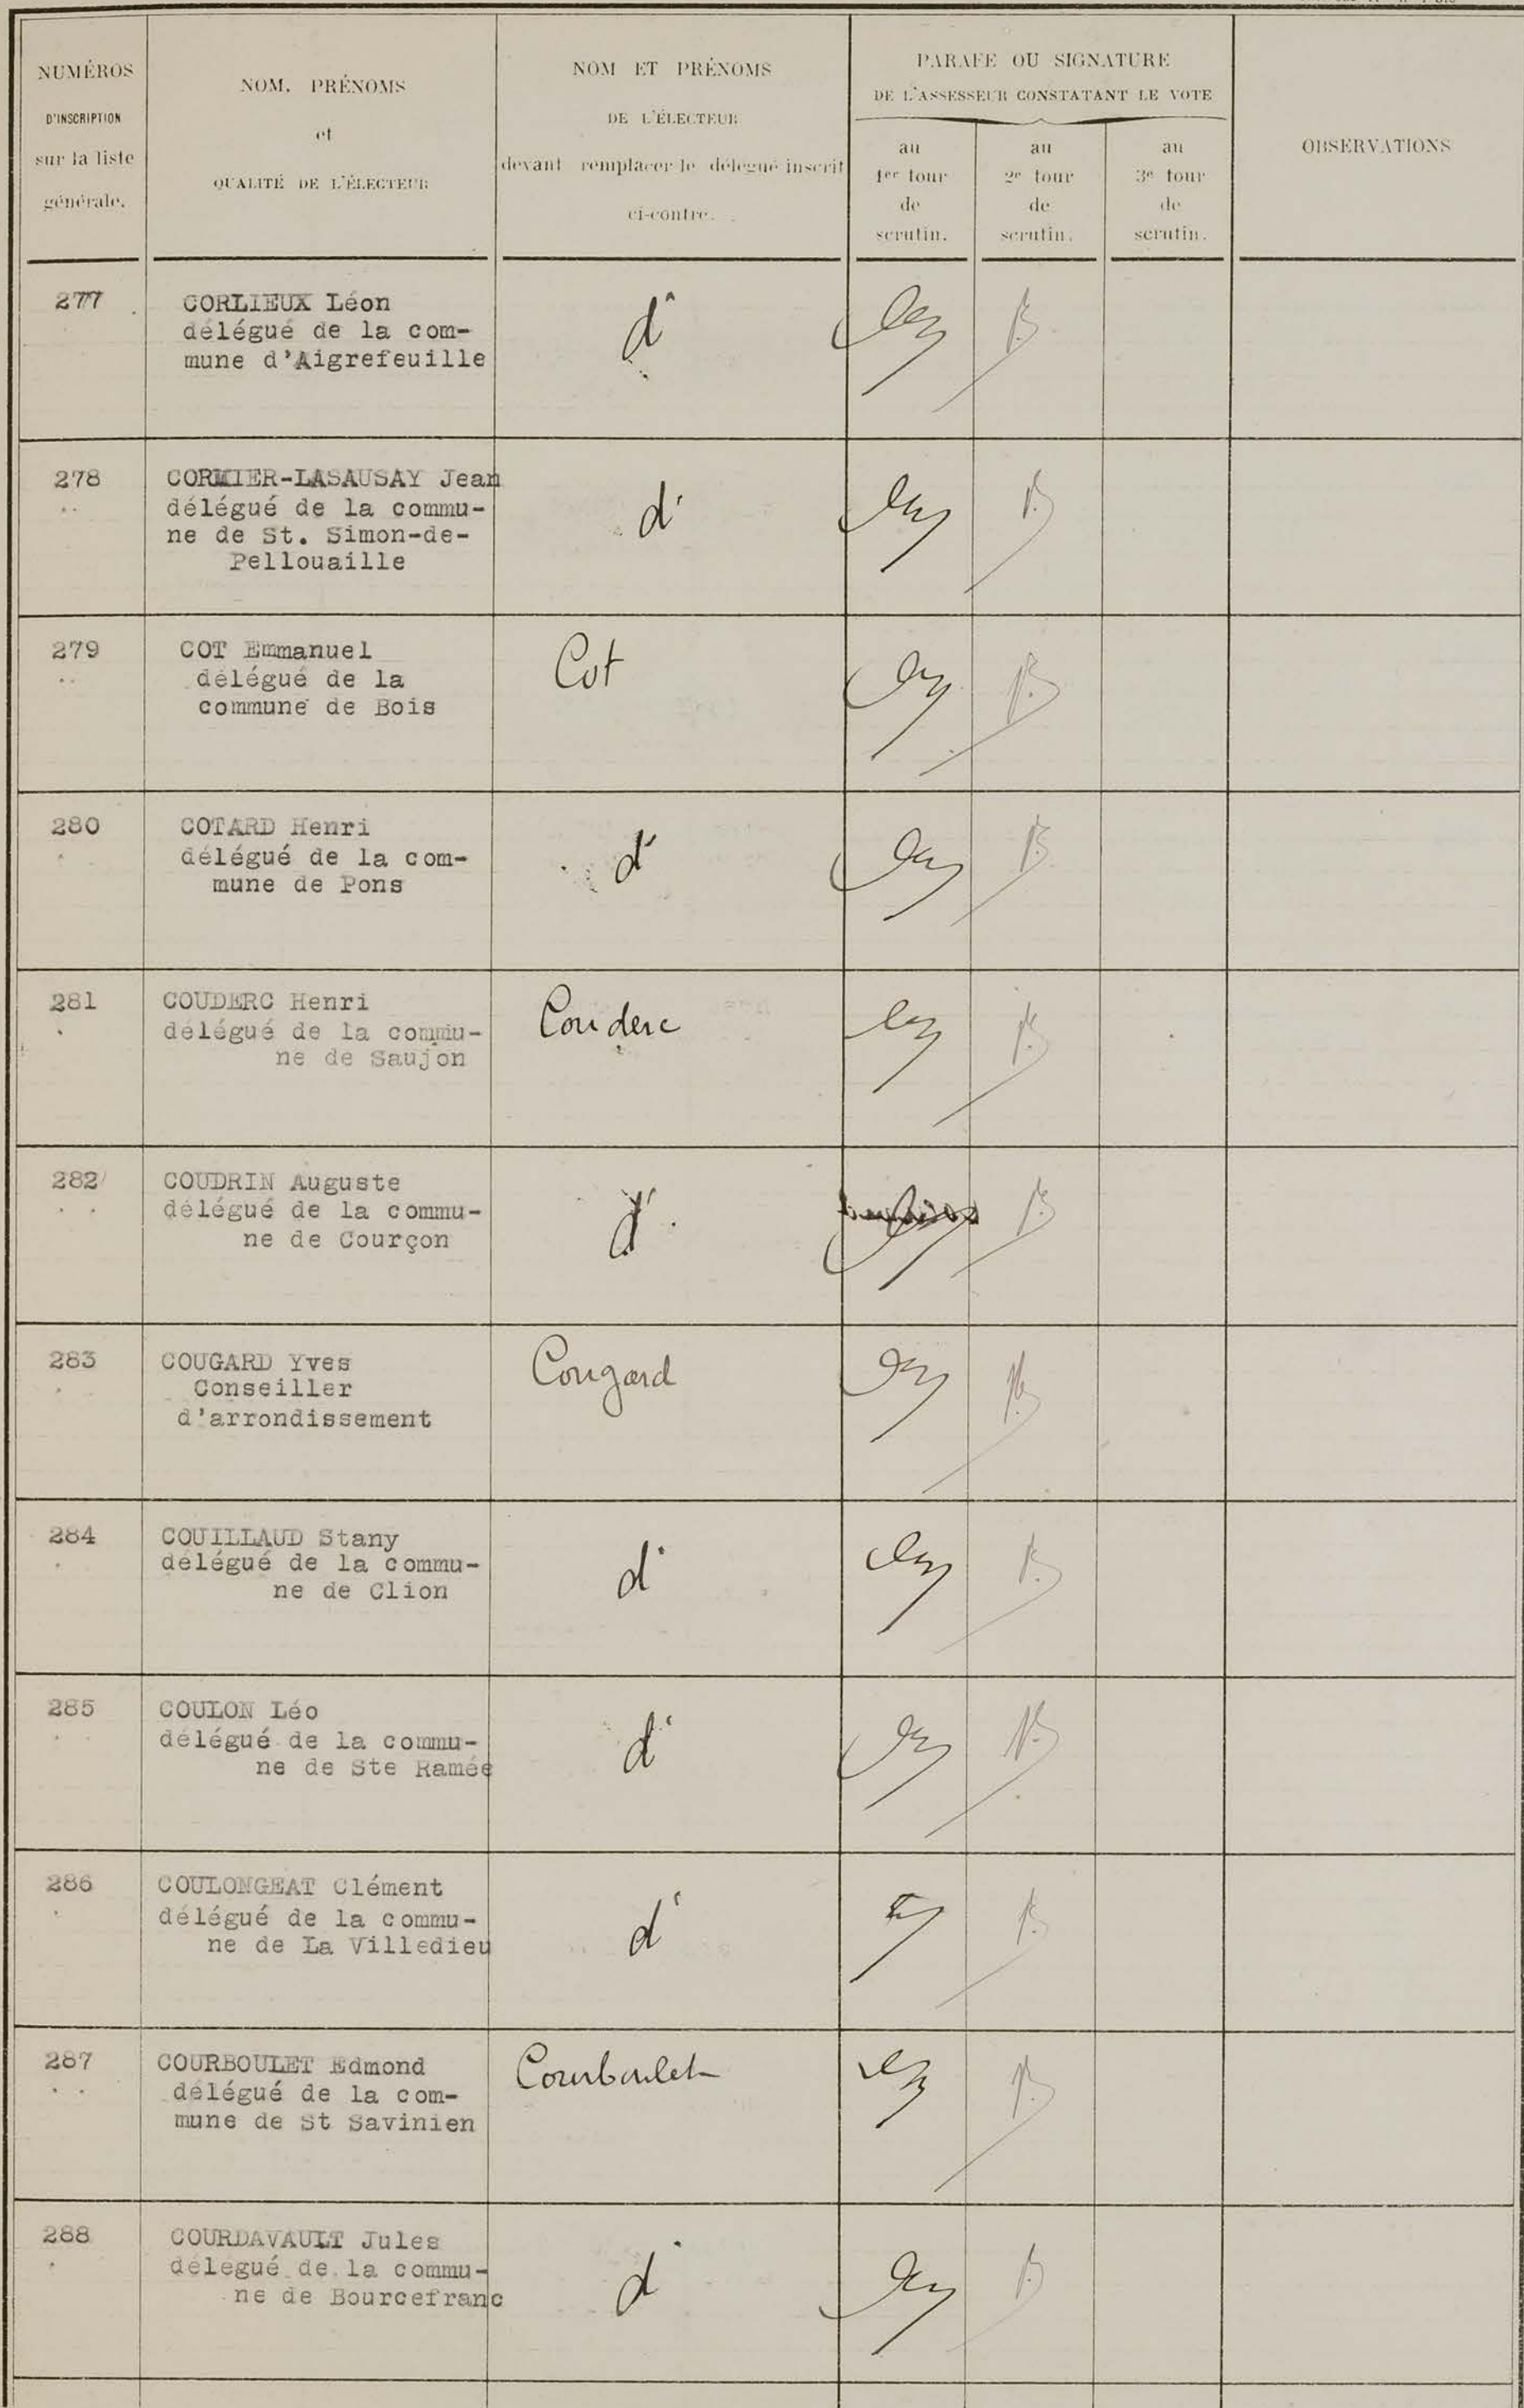 NUMÉROS
D'INSCRIPTION
sur la liste
générale.
NOM, PRÉNOMS
et
QUALITÉ DE L'ÉLECTEUR
NOM ET PRÉNOMS
DE L'ÉLECTEUR
devant remplacer le délégué inscrit
ci-contre.
PARAFE OU SIGNATURE
DE L'ASSESSEUR CONSTATANT LE VOTE
au
1er tour
de
scrutin.
au
2e tour
de
scrutin.
au
3e tour
de
scrutin.
OBSERVATIONS
277
CORLIEUX Léon
délégué de la com-
mune d'Aigrefeuille
d°
278
CORMIER-LASAUSAY Jean
délégué de la commu-
ne de St. Simon-de-
Pellouaille
d°
279
COT Emmanuel
délégué de la
commune de Bois
Cot
280
COTARD Henri
délégué de la com-
mune de Pons
d°
281
COUDERC Henri
délégué de la commu-
ne de Saujon
Couderc
282
COUDRIN Auguste
délégué de la commu-
ne de Courçon
d°
283
COUGARD Yves
Conseiller
d'arrondissement
Cougard
284
COUILLAUD Stany
délégué de la commu-
ne de Clion
d°
285
COULON Léo
délégué de la commu-
ne de Ste Ramée
d°
286
COULONGEAT Clément
délégué de la commu-
ne de La Villedieu
d°
287
COURBOULET Edmond
délégué de la com-
mune de St Savinien
Courboulet
288
COURDAVAULT Jules
délegué de la commu-
ne de Bourcefranc
d°